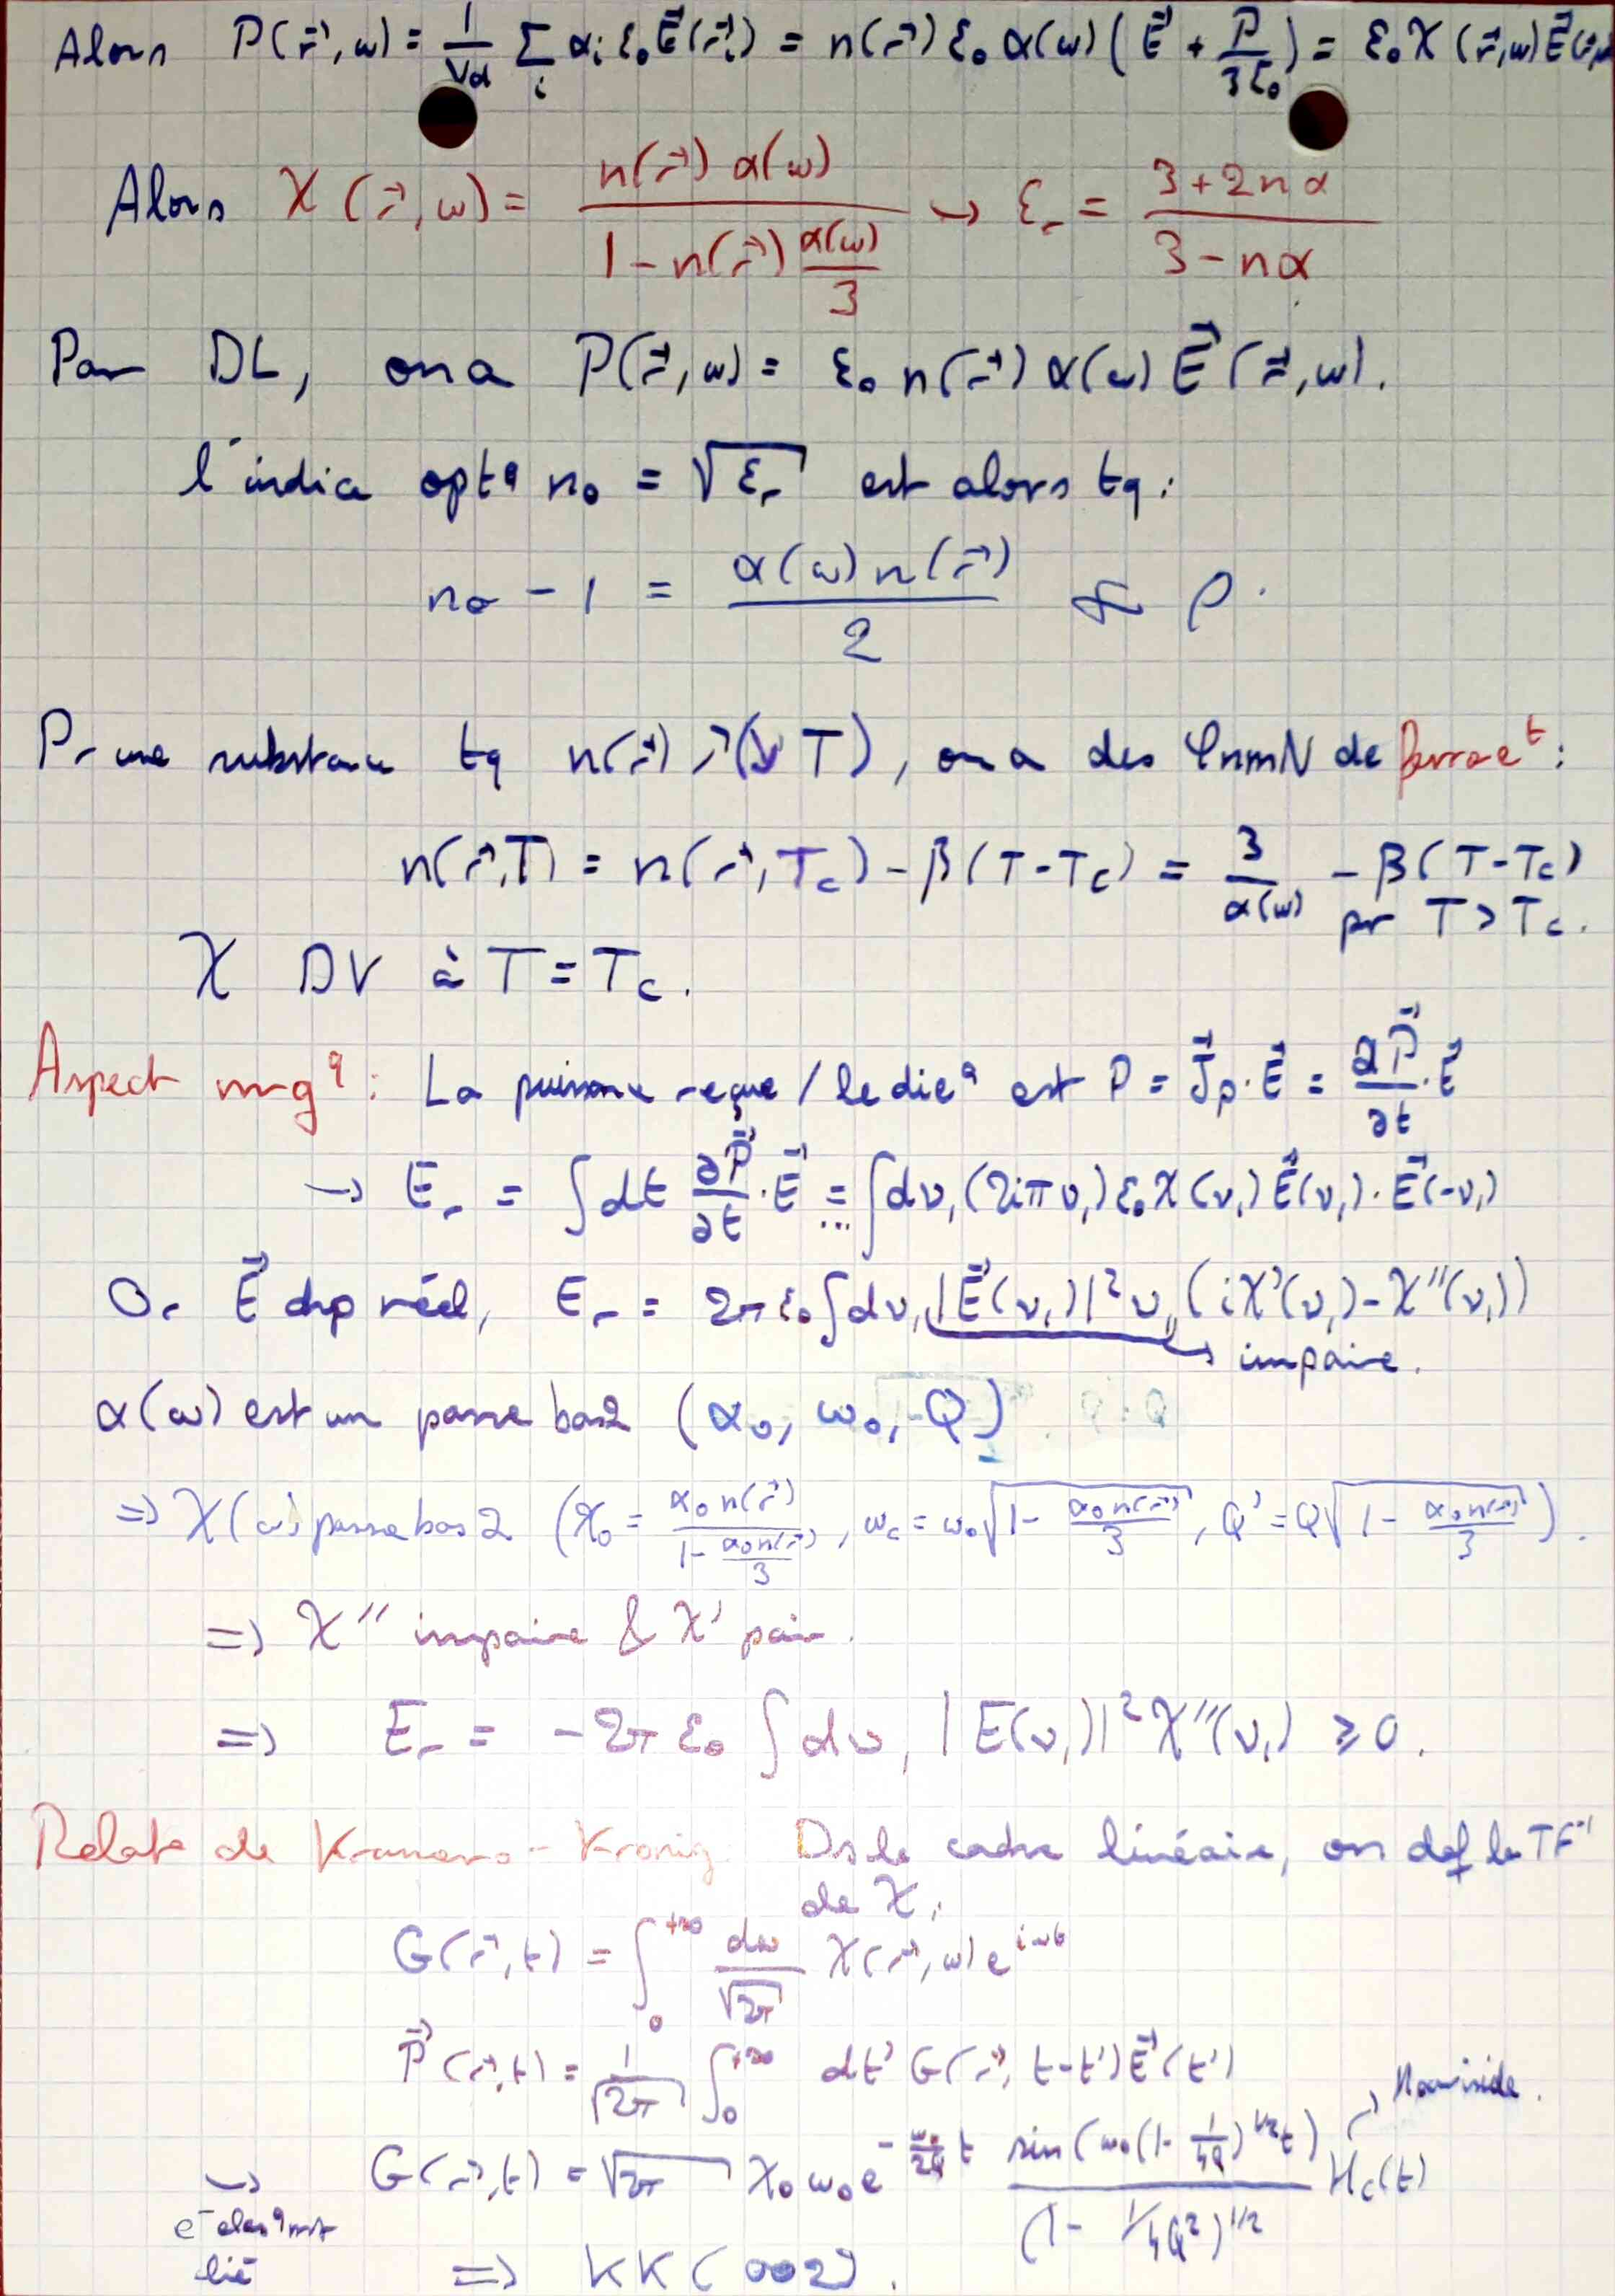 Alors P(r⃗,ω) = 1/Vol Σ_i α_i ε₀ E⃗(r⃗_i) = n(r⃗) ε₀ α(ω) (E⃗ + P/3ε₀) = ε₀ χ(r⃗,ω) E⃗(r⃗,ω)
Alors χ(r⃗,ω) = n(r⃗) α(ω) / (1 - n(r⃗) α(ω)/3) → ε_r = (3+2nα)/(3-nα)
Par DL, on a P(r⃗,ω) = ε₀ n(r⃗) α(ω) E⃗(r⃗,ω).
l'indice optq n₀ = √ε_r est alors tq :
n₀ - 1 = α(ω) n(r⃗)/2 ∝ ρ.
Pr une substance tq n(r⃗) ↗ (↘ T), on a des φnmN de ferroet :
n(r⃗,T) = n(r⃗,T_c) - β(T-T_c) = 3/α(ω) - β(T-T_c)
pr T > T_c.
χ DV à T = T_c.
Aspect nrgq : La puissance reçue / le dieq est P = J⃗_p·E⃗ = ∂P⃗/∂t·E⃗
→ E_r = ∫dt ∂P⃗/∂t·E⃗ =... ∫dν₁ (2iπν₁) ε₀ χ(ν₁) E⃗(ν₁)·E⃗(-ν₁)
Or E⃗ chp réel, E_r = 2π ε₀ ∫dν₁ |E⃗(ν₁)|² ν₁ (iχ'(ν₁) - χ''(ν₁))
→ impaire.
α(ω) est un passe bas 2 (α₀, ω₀, Q)
⇒ χ(ω) passe bas 2 (χ₀ = α₀ n(r⃗)/(1 - α₀n(r⃗)/3), ω_c = ω₀√(1 - α₀n(r⃗)/3), Q' = Q√(1 - α₀n(r⃗)/3)).
⇒ χ'' impaire & χ' pair.
⇒ E_r = -2π ε₀ ∫dν₁ |E(ν₁)|² χ''(ν₁) ≥ 0.
Relat° de Kramers-Kronig. Ds le cadre linéaire, on def la TF⁻¹
de χ,
G(r⃗,t) = ∫₀^{+∞} dω/√2π χ(r⃗,ω) e^{iωt}
P⃗(r⃗,t) = 1/√2π ∫₀^{+∞} dt' G(r⃗,t-t') E⃗(t')
→ Heaviside.
→ G(r⃗,t) = √2π χ₀ ω₀ e^{-ω₀/2Q t} sin(ω₀(1 - 1/4Q)^{1/2} t)/(1 - 1/4Q²)^{1/2} H_c(t)
e⁻ elasqmt
lié
⇒ KK (002).